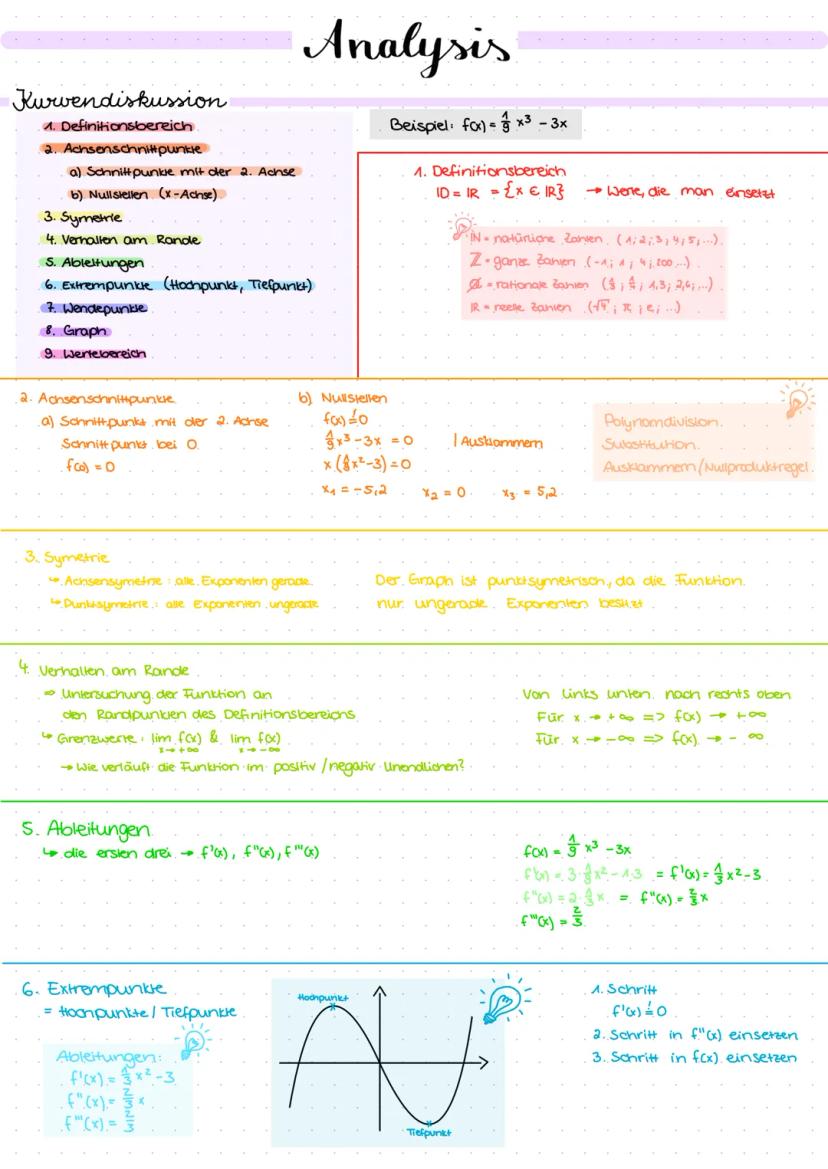 Analysis
Kurvendiskussion
1. Definitionsbereich
2. Achsenschnittpunkte
a) Schnittpunkte mit der 2. Achse
b) Nullstellen (x-Achse)
3. Symetrie
4. Verhalten am Rande
5. Ableitungen
6. Extrempunkte (Hochpunkt, Tiefpunkt)
7. Wendepunkte
8. Graph
9. Wertebereich
Beispiel: f(x) = 1/9 x³ - 3x
1. Definitionsbereich
ID = IR = {x ∈ IR} → Werte, die man einsetzt
IN = natürliche Zahlen (1; 2; 3; 4; 5; ...)
ℤ = ganze Zahlen (-1; 1; 4; 100 ...)
ℚ = rationale Zahlen
IR = reelle Zahlen (√4; π; e; ...)
2. Achsenschnittpunkte
a) Schnittpunkt mit der 2. Achse
Schnittpunkt bei 0
f(0) = 0
b) Nullstellen
f(x) != 0
1/9 x³ - 3x = 0 | Ausklammern
x (1/9 x² - 3) = 0
x₁ = -5,2 x₂ = 0 x₃ = 5,2
Polynomdivision
Substitution
Ausklammern/Nullproduktregel
3. Symetrie
↳ Achsensymetrie: alle Exponenten gerade
↳ Punktsymetrie: alle Exponenten ungerade
Der Graph ist punktsymetrisch, da die Funktion
nur ungerade Exponenten besitzt
4. Verhalten am Rande
⇒ Untersuchung der Funktion an
den Randpunkten des Definitionsbereichs
↳ Grenzwerte: lim f(x) & lim f(x)
x→+∞ x→-∞
→ Wie verläuft die Funktion im positiv/negativ Unendlichen?
Von links unten nach rechts oben
Für x → +∞ => f(x) → +∞
Für x → -∞ => f(x) → -∞
5. Ableitungen
↳ die ersten drei → f'(x), f''(x), f'''(x)
f(x) = 1/9 x³ - 3x
f'(x) = 3·1/9 x² - 1·3 = f'(x) = 1/3 x² - 3
f''(x) = 2·1/3 x = f''(x) = 2/3 x
f'''(x) = 2/3
6. Extrempunkte
= Hochpunkte/Tiefpunkte
Ableitungen:
f'(x) = 1/3 x² - 3
f''(x) = 2/3 x
f'''(x) = 2/3
Hochpunkt
Tiefpunkt
1. Schritt
f'(x) != 0
2. Schritt in f''(x) einsetzen
3. Schritt in f(x) einsetzen